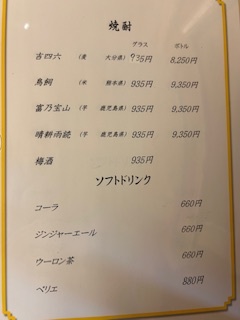 焼酎
グラス ボトル
吉四六 (麦 大分県) 935円 8,250円
鳥飼 (米 熊本県) 935円 9,350円
富乃宝山 (芋 鹿児島県) 935円 9,350円
晴耕雨読 (芋 鹿児島県) 935円 9,350円
梅酒 935円
ソフトドリンク
コーラ 660円
ジンジャーエール 660円
ウーロン茶 660円
ペリエ 880円